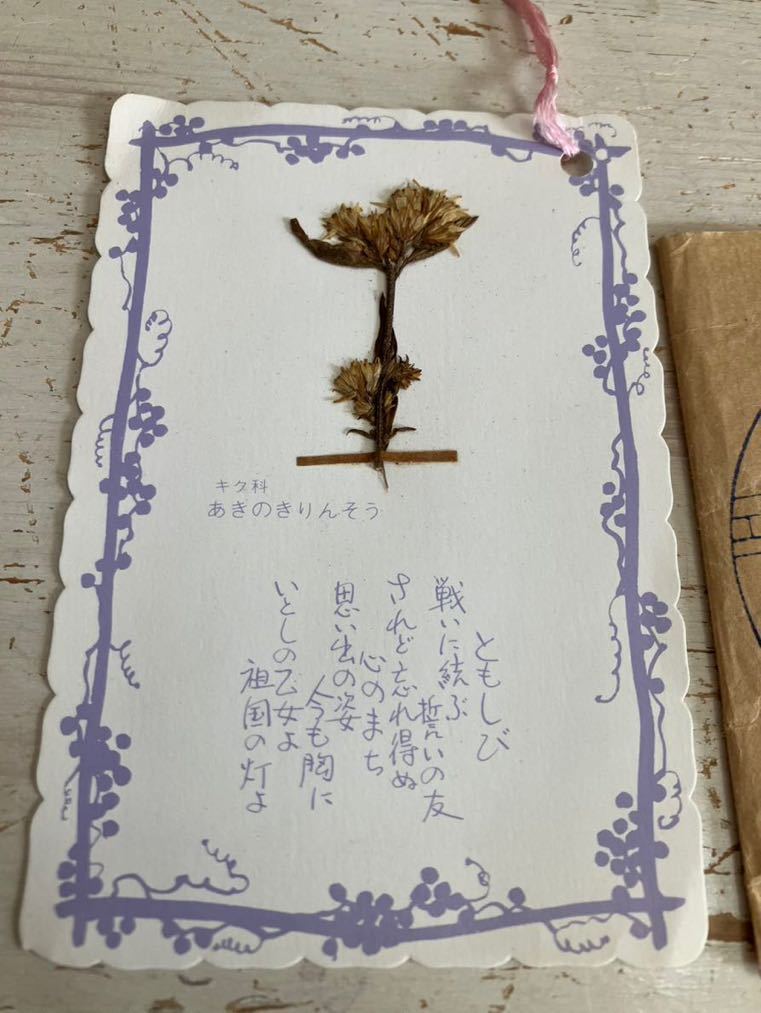 キク科
あきのきりんそう
ともしび
戦いに結ぶ
誓いの友
されど忘れ得ぬ
心のまち
思い出の姿
今も胸に
いとしの乙女よ
祖国の灯よ